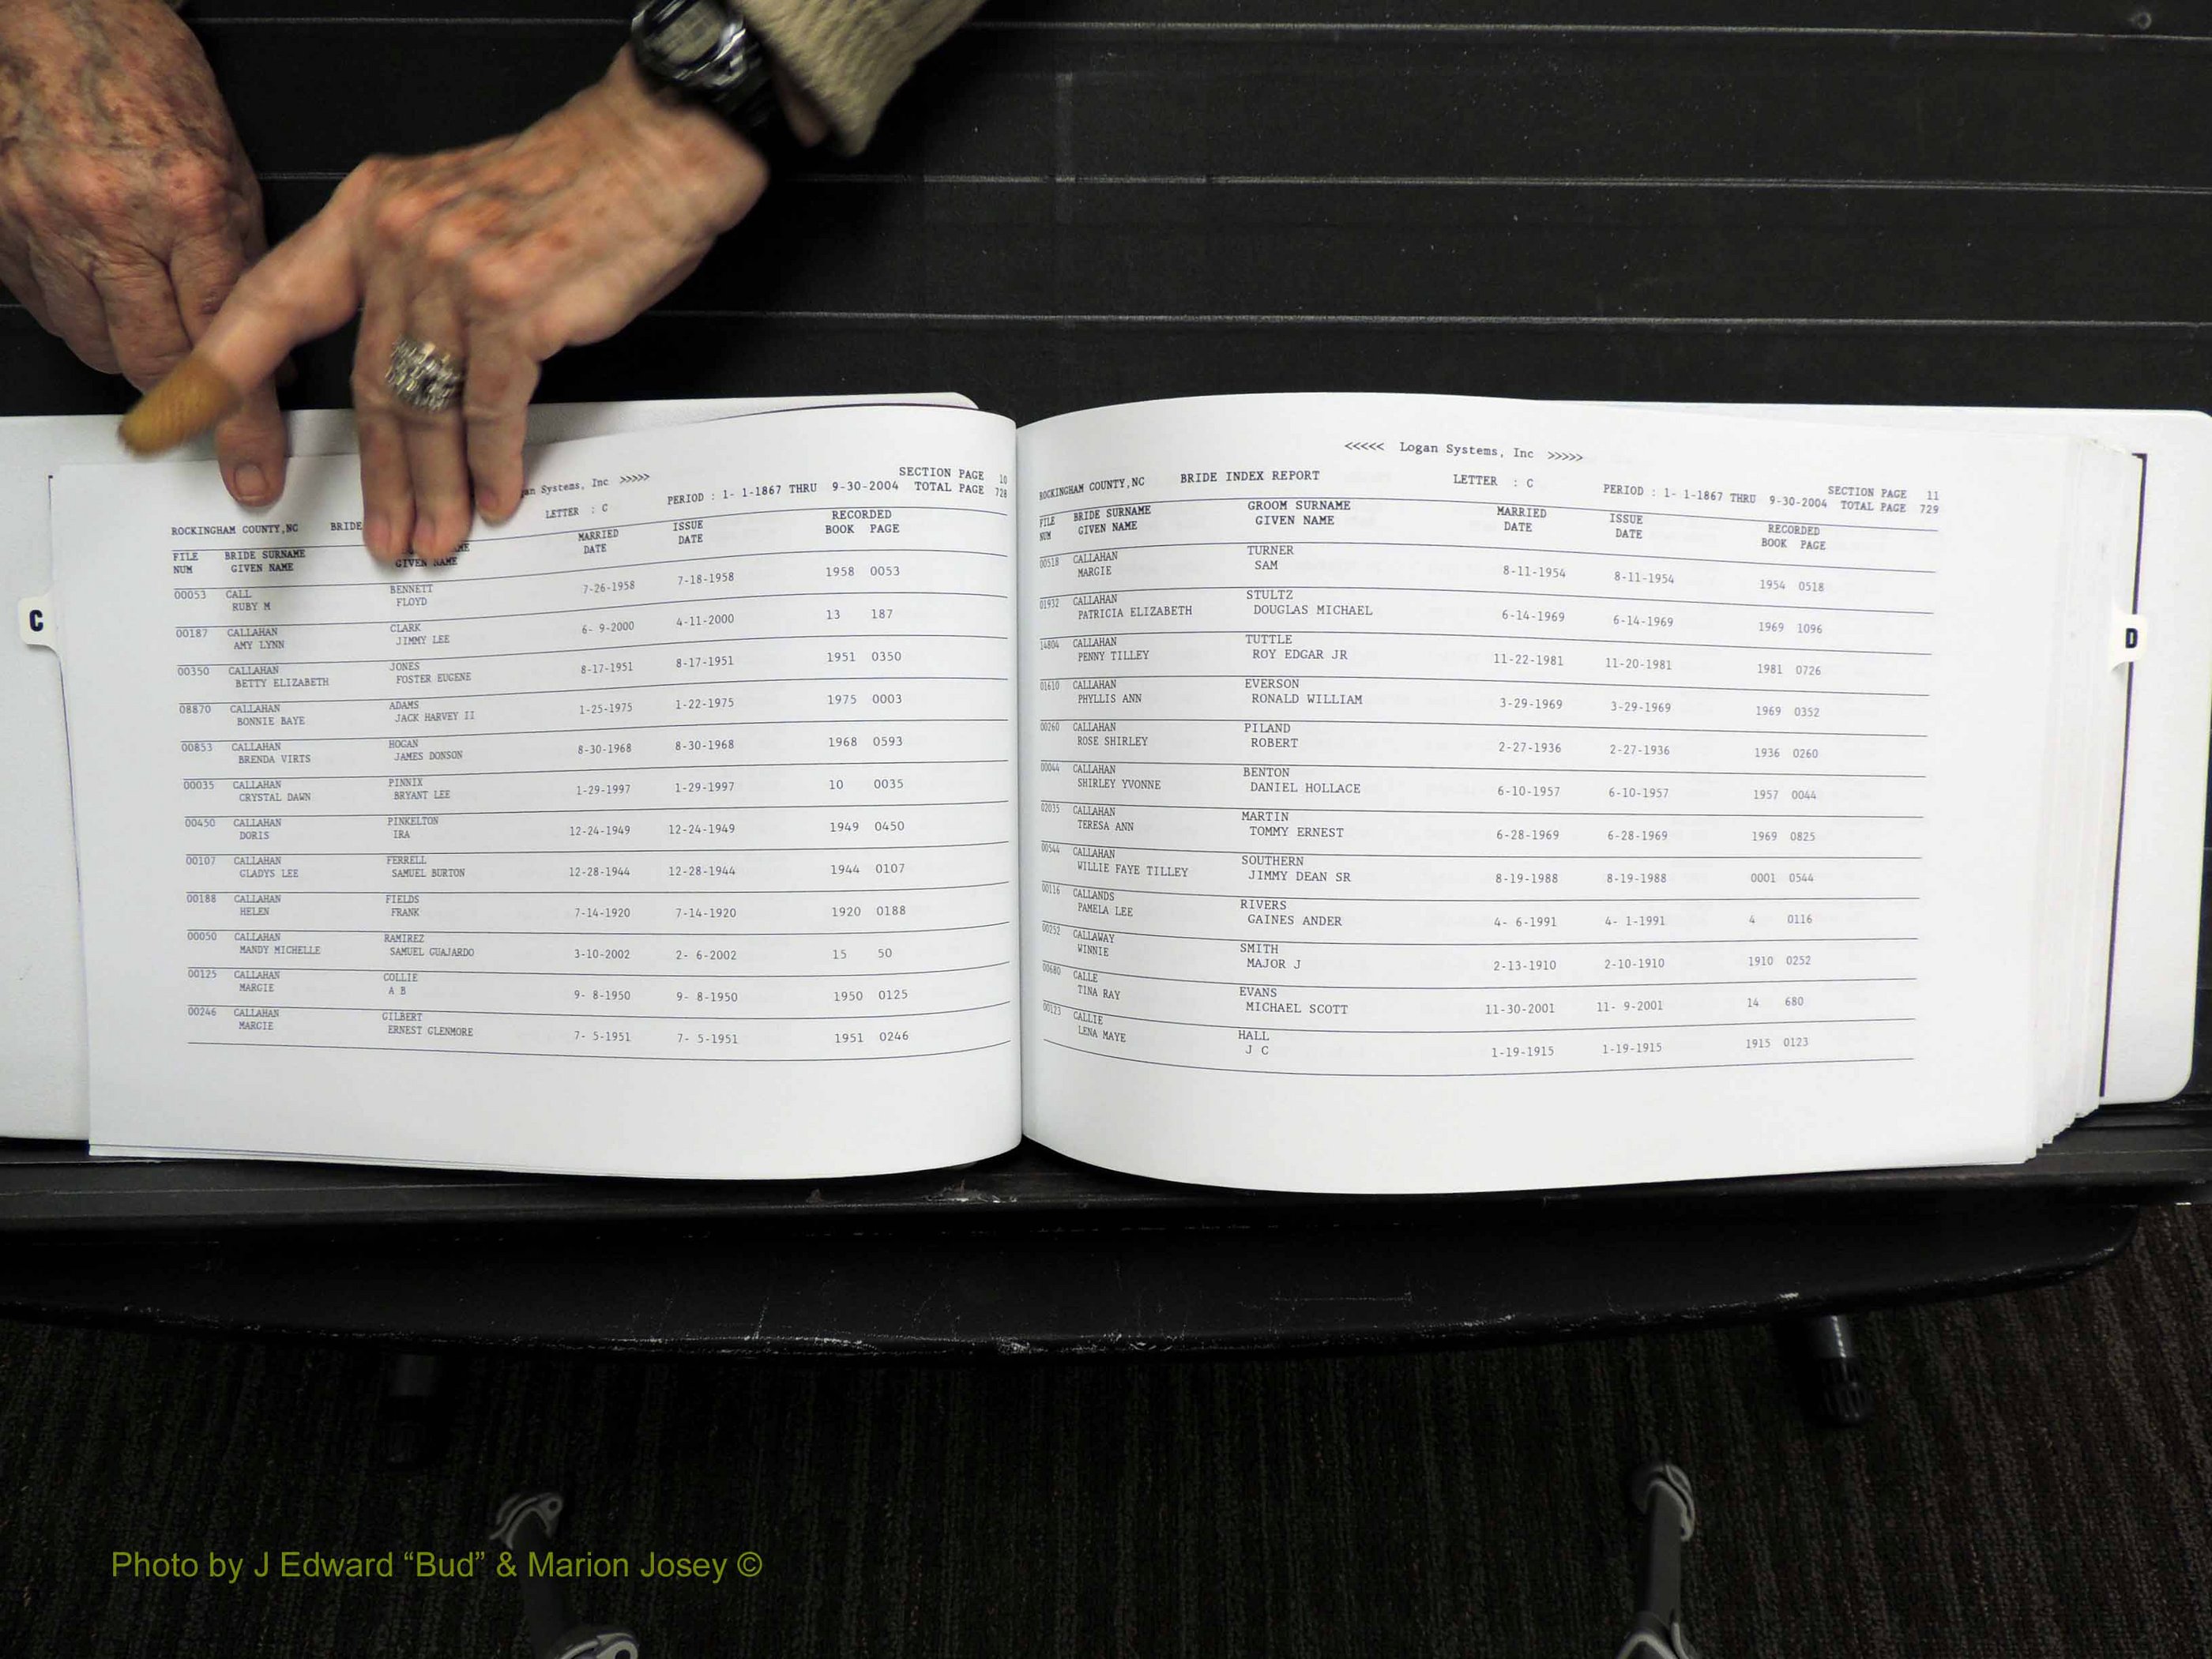 C
an Systems, Inc >>>>>
SECTION PAGE 10
ROCKINGHAM COUNTY,NC BRIDE LETTER : C PERIOD : 1- 1-1867 THRU 9-30-2004 TOTAL PAGE 728
FILE BRIDE SURNAME MARRIED ISSUE RECORDED
NUM GIVEN NAME GIVEN NAME DATE DATE BOOK PAGE
00053 CALL BENNETT 7-26-1958 7-18-1958 1958 0053
RUBY M FLOYD
00187 CALLAHAN CLARK 6- 9-2000 4-11-2000 13 187
AMY LYNN JIMMY LEE
00350 CALLAHAN JONES 8-17-1951 8-17-1951 1951 0350
BETTY ELIZABETH FOSTER EUGENE
08870 CALLAHAN ADAMS 1-25-1975 1-22-1975 1975 0003
BONNIE BAYE JACK HARVEY II
00853 CALLAHAN HOGAN 8-30-1968 8-30-1968 1968 0593
BRENDA VIRTS JAMES DONSON
00035 CALLAHAN PINNIX 1-29-1997 1-29-1997 10 0035
CRYSTAL DAWN BRYANT LEE
00450 CALLAHAN PINKELTON 12-24-1949 12-24-1949 1949 0450
DORIS IRA
00107 CALLAHAN FERRELL 12-28-1944 12-28-1944 1944 0107
GLADYS LEE SAMUEL BURTON
00188 CALLAHAN FIELDS 7-14-1920 7-14-1920 1920 0188
HELEN FRANK
00050 CALLAHAN RAMIREZ 3-10-2002 2- 6-2002 15 50
MANDY MICHELLE SAMUEL GUAJARDO
00125 CALLAHAN COLLIE 9- 8-1950 9- 8-1950 1950 0125
MARGIE A B
00246 CALLAHAN GILBERT 7- 5-1951 7- 5-1951 1951 0246
MARGIE ERNEST GLENMORE
<<<<< Logan Systems, Inc >>>>>
SECTION PAGE 11
ROCKINGHAM COUNTY,NC BRIDE INDEX REPORT LETTER : C PERIOD : 1- 1-1867 THRU 9-30-2004 TOTAL PAGE 729
FILE BRIDE SURNAME GROOM SURNAME MARRIED ISSUE RECORDED
NUM GIVEN NAME GIVEN NAME DATE DATE BOOK PAGE
00518 CALLAHAN TURNER 8-11-1954 8-11-1954 1954 0518
MARGIE SAM
01932 CALLAHAN STULTZ 6-14-1969 6-14-1969 1969 1096
PATRICIA ELIZABETH DOUGLAS MICHAEL
14804 CALLAHAN TUTTLE 11-22-1981 11-20-1981 1981 0726
PENNY TILLEY ROY EDGAR JR
01610 CALLAHAN EVERSON 3-29-1969 3-29-1969 1969 0352
PHYLLIS ANN RONALD WILLIAM
00260 CALLAHAN PILAND 2-27-1936 2-27-1936 1936 0260
ROSE SHIRLEY ROBERT
00044 CALLAHAN BENTON 6-10-1957 6-10-1957 1957 0044
SHIRLEY YVONNE DANIEL HOLLACE
02035 CALLAHAN MARTIN 6-28-1969 6-28-1969 1969 0825
TERESA ANN TOMMY ERNEST
00544 CALLAHAN SOUTHERN 8-19-1988 8-19-1988 0001 0544
WILLIE FAYE TILLEY JIMMY DEAN SR
00116 CALLANDS RIVERS 4- 6-1991 4- 1-1991 4 0116
PAMELA LEE GAINES ANDER
00252 CALLAWAY SMITH 2-13-1910 2-10-1910 1910 0252
WINNIE MAJOR J
00680 CALLE EVANS 11-30-2001 11- 9-2001 14 680
TINA RAY MICHAEL SCOTT
00123 CALLIE HALL 1-19-1915 1-19-1915 1915 0123
LENA MAYE J C
D
Photo by J Edward “Bud” & Marion Josey ©